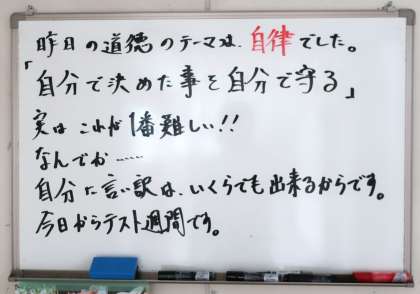 昨日の道徳のテーマは、自律でした。
「自分で決めた事を自分で守る」
実はこれが1番難しい!!
なんでか……
自分に言い訳は、いくらでも出来るからです。
今日からテスト週間です。